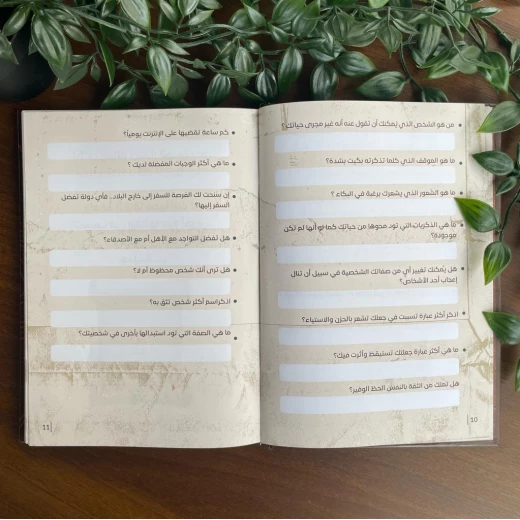 من هو الشخص الذي يمكنك أن تقول عنه أنه غير مجرى حياتك؟
ما هو الموقف الذي كلما تذكرته بكيت بشدة؟
ما هو الشعور الذي يشعرك برغبة في البكاء ؟
ما هي الذكريات التي تود محوها من حياتك كما لو أنها لم تكن
موجودة؟
هل يمكنك تغيير أي من صفاتك الشخصية في سبيل أن تنال
إعجاب أحد الأشخاص؟
اذكر أكثر عبارة تسببت في جعلك تشعر بالحزن والاستياء؟
ما هي أكثر عبارة جعلتك تستيقظ وأثرت فيك؟
هل تملك من الثقة بالنفس الحظ الوفير؟
10
كم ساعة تقضيها على الإنترنت يومياً؟
ما هي أكثر الوجبات المفضلة لديك ؟
إن سنحت لك الفرصة للسفر إلى خارج البلاد.. فأي دولة تفضل
السفر إليها؟
هل تفضل التواجد مع الأهل أم مع الأصدقاء؟
هل ترى أنك شخص محظوظ أم لا؟
اذكر اسم أكثر شخص تثق به؟
ما هي الصفة التي تود استبدالها بأخرى في شخصيتك؟
11